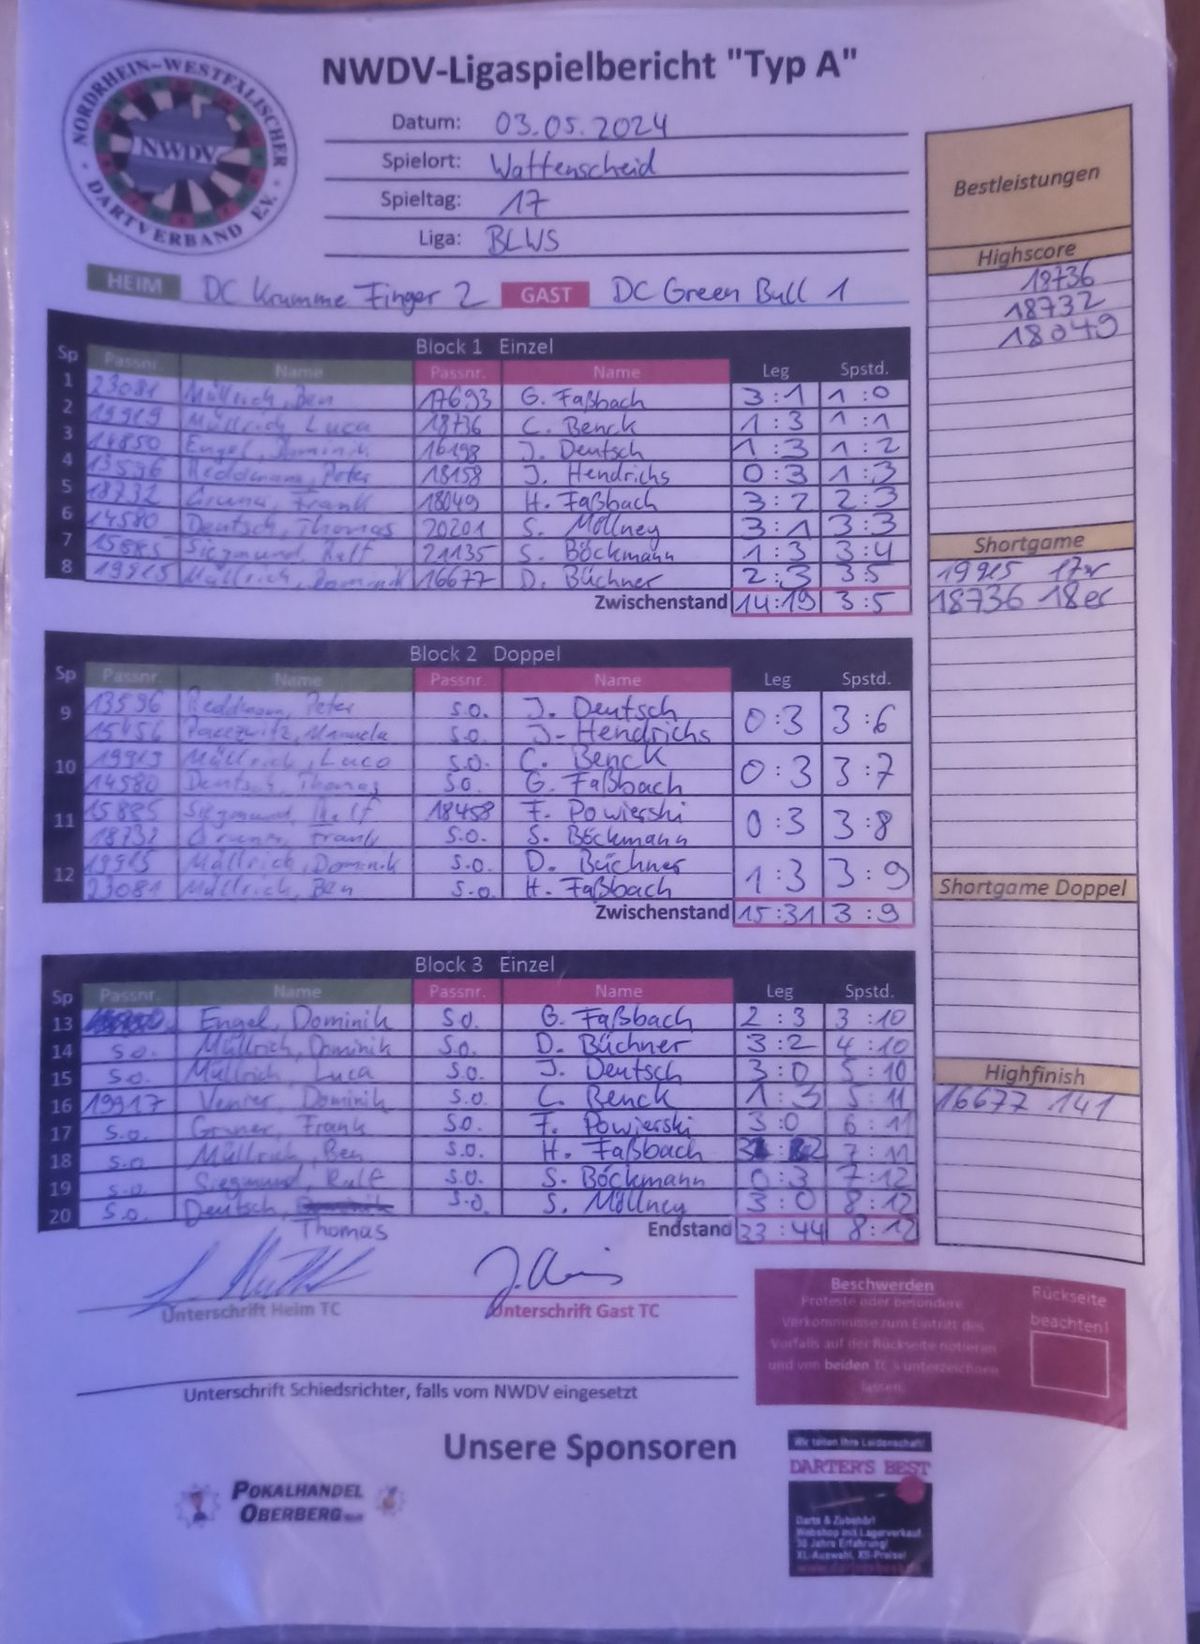 NORDRHEIN-WESTFÄLISCHER
NWDV
DARTVERBAND E.V.
NWDV-Ligaspielbericht "Typ A"
Datum: 03.05.2024
Spielort: Wattenscheid
Spieltag: 17
Liga: BLWS
HEIM DC Krumme Finger 2 GAST DC Green Bull 1
Bestleistungen
Highscore
18736
18732
18049
Shortgame
19915 17er
18736 18er
Shortgame Doppel
Highfinish
16677 141
Block 1 Einzel
Sp Passnr. Name Passnr. Name Leg Spstd.
1 23081 Müllrich, Ben 17693 G. Faßbach 3:1 1:0
2 19919 Müllrich, Luca 18736 C. Benck 1:3 1:1
3 14850 Engel, Dominik 16198 J. Deutsch 1:3 1:2
4 13596 Reddmann, Peter 18158 J. Hendrichs 0:3 1:3
5 18732 Gruner, Frank 18049 H. Faßbach 3:2 2:3
6 14580 Deutsch, Thomas 20201 S. Möllney 3:1 3:3
7 15885 Siegmund, Ralf 21135 S. Böckmann 1:3 3:4
8 19915 Müllrich, Dominik 16677 D. Büchner 2:3 3:5
Zwischenstand 14:19 3:5
Block 2 Doppel
Sp Passnr. Name Passnr. Name Leg Spstd.
9 13596 Reddmann, Peter s.o. J. Deutsch 0:3 3:6
15456 Manuela s.o. J. Hendrichs
10 19919 Müllrich, Luca s.o. C. Benck 0:3 3:7
14580 Deutsch, Thomas s.o. G. Faßbach
11 15885 Siegmund, Ralf 18458 F. Powierski 0:3 3:8
18732 Gruner, Frank s.o. S. Böckmann
12 19915 Müllrich, Dominik s.o. D. Büchner 1:3 3:9
23081 Müllrich, Ben s.o. H. Faßbach
Zwischenstand 15:31 3:9
Block 3 Einzel
Sp Passnr. Name Passnr. Name Leg Spstd.
13 Engel, Dominik s.o. G. Faßbach 2:3 3:10
14 s.o. Müllrich, Dominik s.o. D. Büchner 3:2 4:10
15 s.o. Müllrich, Luca s.o. J. Deutsch 3:0 5:10
16 19917 Venier, Dominik s.o. C. Benck 1:3 5:11
17 s.o. Gruner, Frank s.o. F. Powierski 3:0 6:11
18 s.o. Müllrich, Ben s.o. H. Faßbach 3:2 7:11
19 s.o. Siegmund, Ralf s.o. S. Böckmann 0:3 7:12
20 s.o. Deutsch, Dominik s.o. S. Möllney 3:0 8:12
Thomas
Endstand 33:44 8:12
Unterschrift Heim TC
Unterschrift Gast TC
Unterschrift Schiedsrichter, falls vom NWDV eingesetzt
Beschwerden
Proteste oder besondere
Vorkommnisse zum Eintritt des
Vorfalls auf der Rückseite notieren
und von beiden TC's unterzeichnen
lassen.
Rückseite
beachten!
Unsere Sponsoren
POKALHANDEL
OBERBERG
Wir teilen Ihre Leidenschaft!
DARTER'S BEST
Darts & Zubehör!
Webshop mit Lagerverkauf
30 Jahre Erfahrung!
XL-Auswahl, XS-Preise!